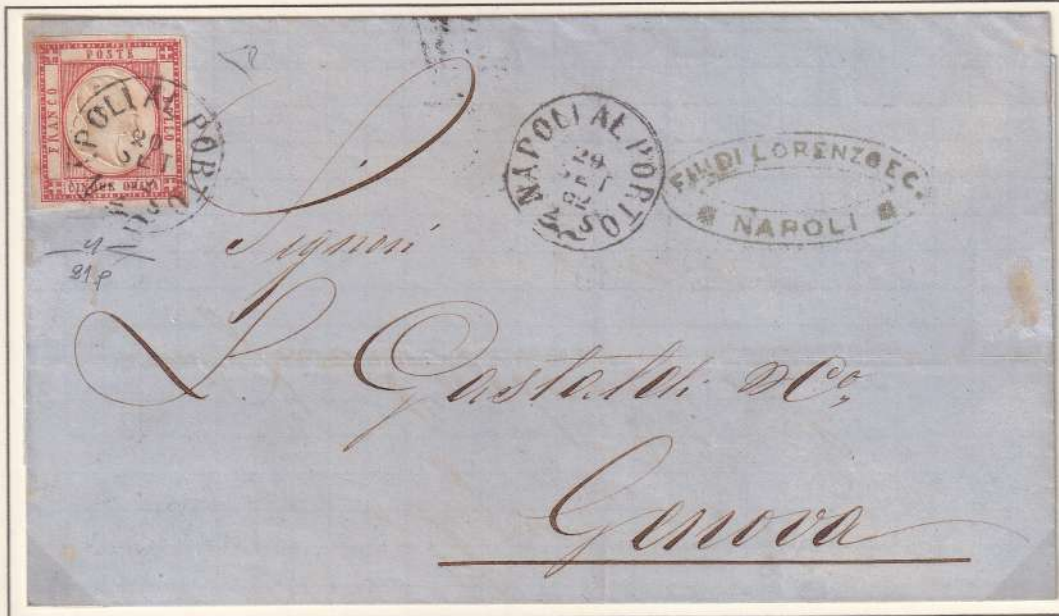 POSTE
FRANCO
BOLLO
NAPOLI AL PORTO
NAPOLI AL PORTO
29
SET
62
FILLI DI LORENZO E C.
NAPOLI
Signori
L. Gastaldi & Co,
Genova